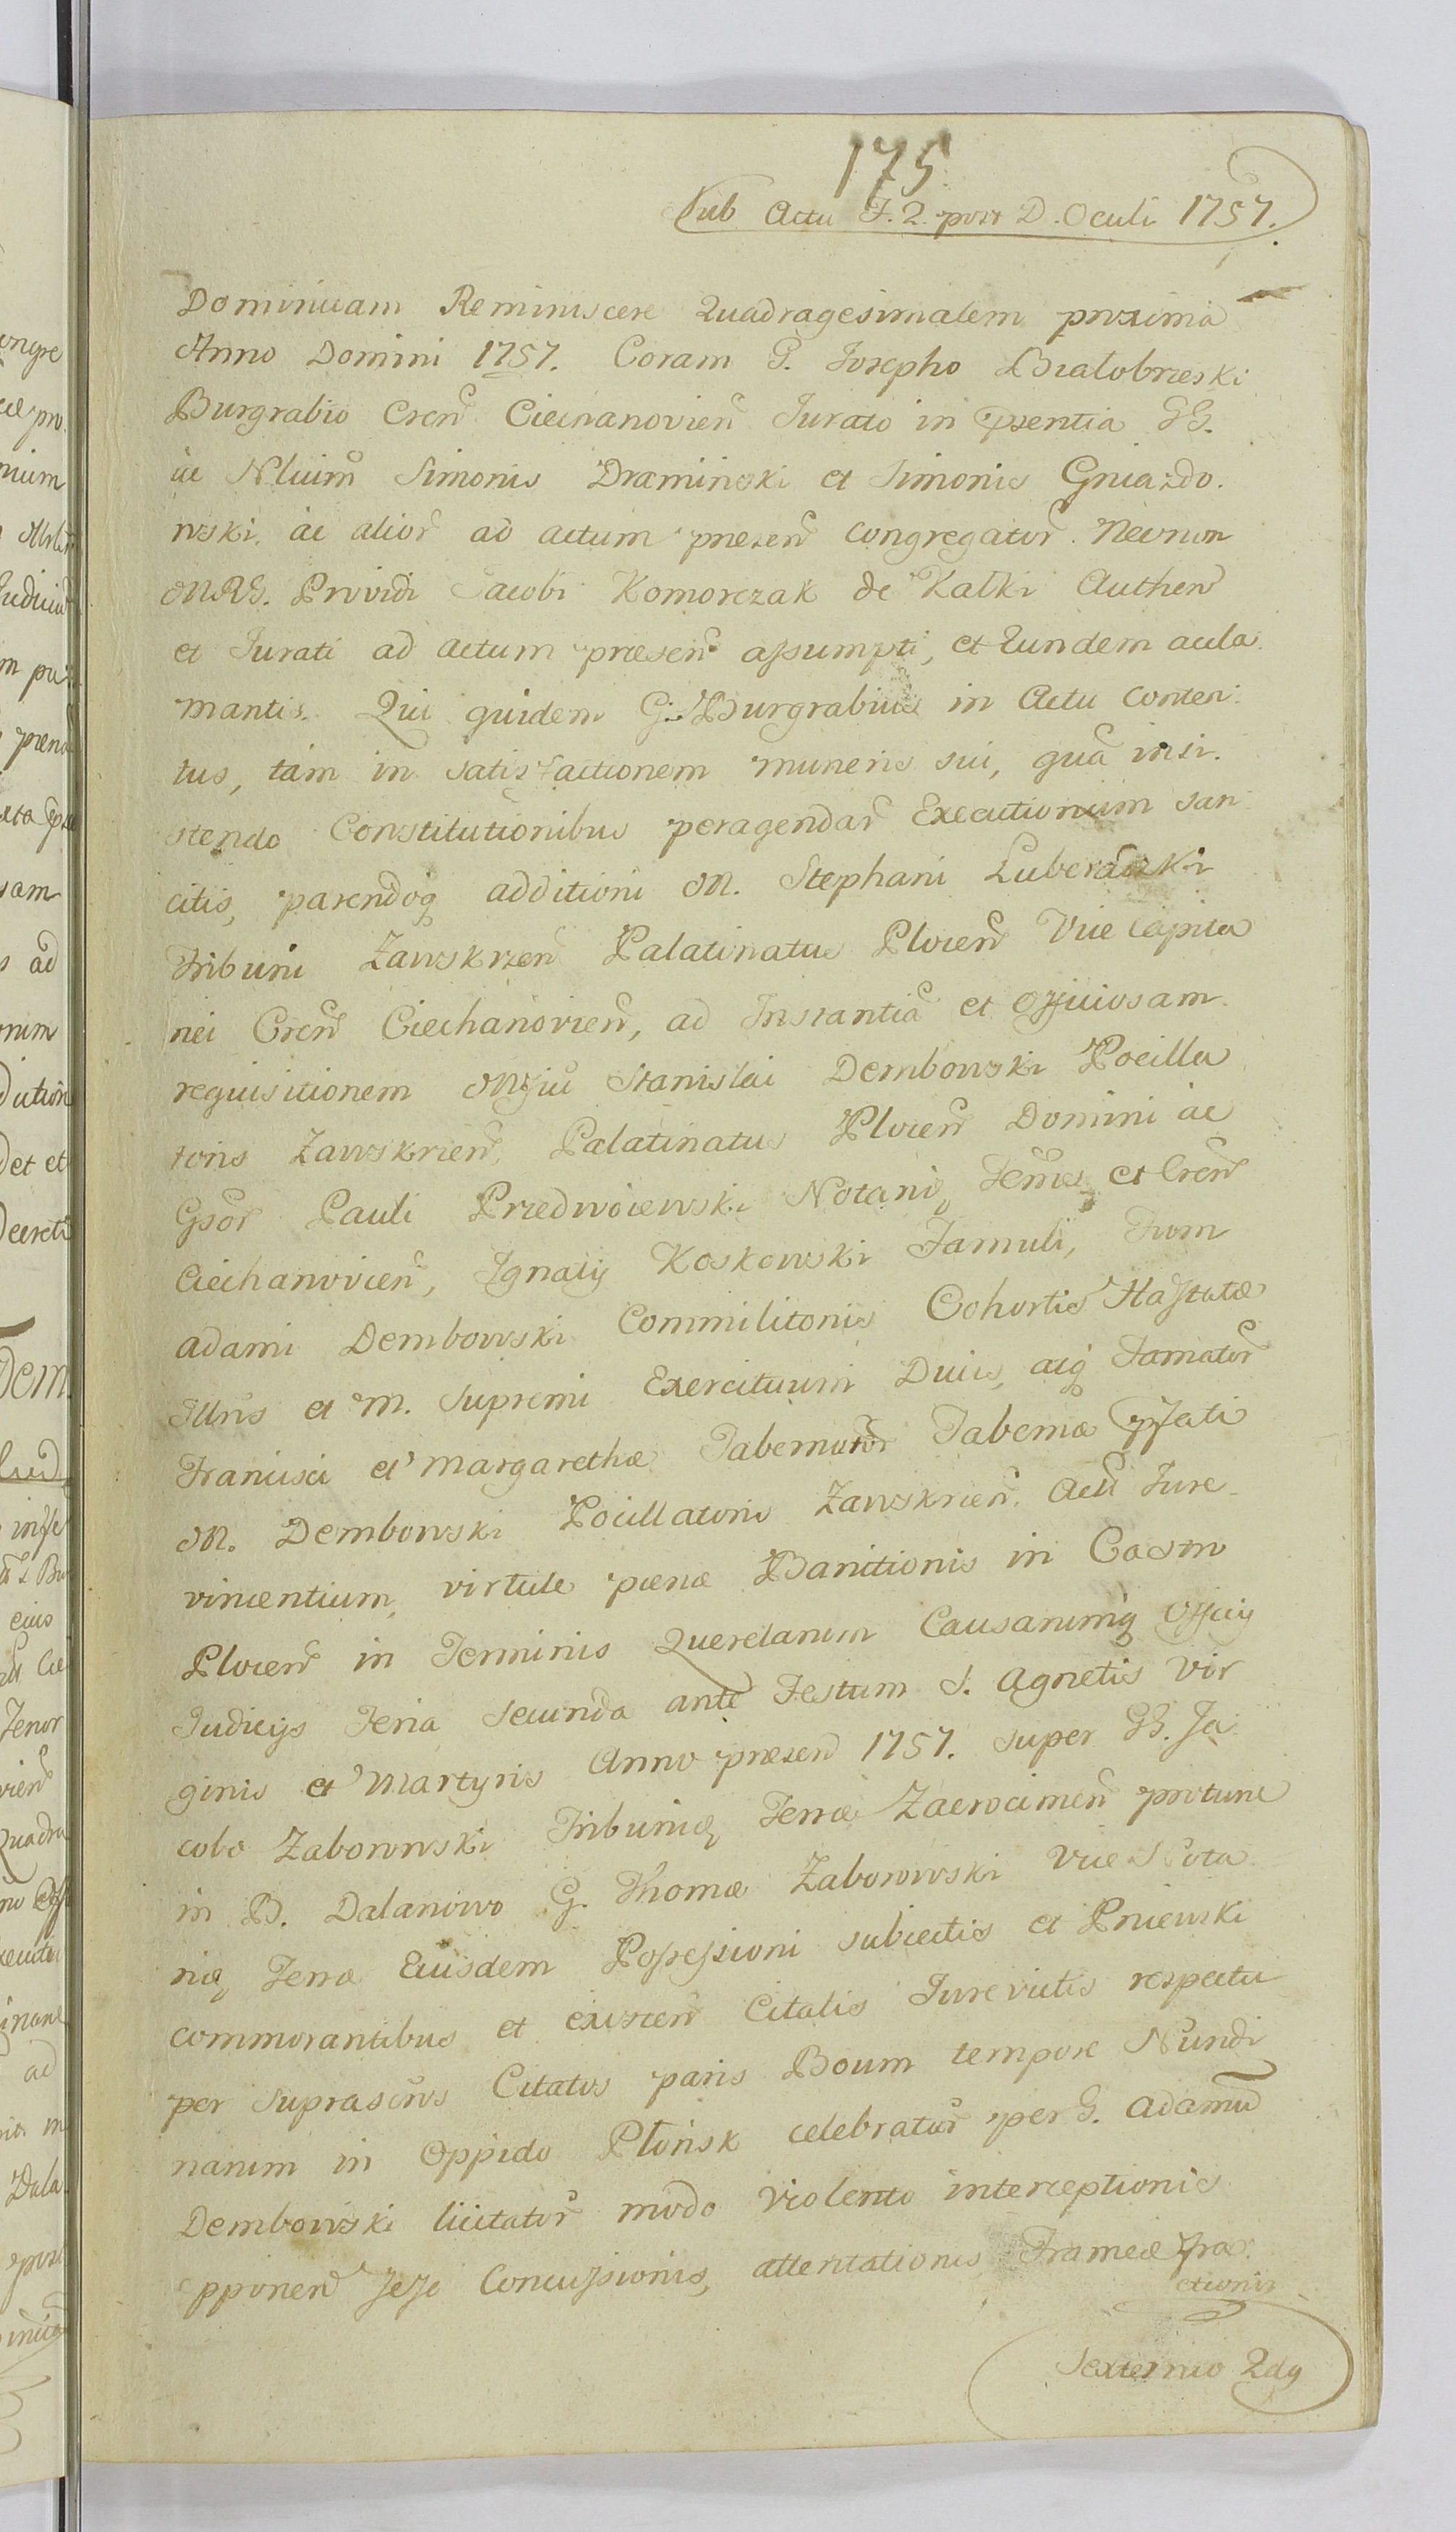 175
Sub Actu F. 2. post D. Oculi 1757.
Dominicam Reminiscere Quadragesimalem proxima
Anno Domini 1757. Coram G. Josepho Białobrzeski
Burgrabio Cren Ciechanovien Jurato in Pntia GG.
ac Nlium Simonis Dramiński et Simonis Gniazdo.
wski ac alior ad actum presen congregator. Necnon
Providi Jacobi Komorczak de Kałki Authen
et Jurati ad actum præsen assumpti, et Eundem accla
mantis. Qui quidem G. Burgrabius in Actu conten
tus, tam in satisfactionem muneris sui, qua insi.
stendo Constitutionibus peragendar Executionum san
citis, parendoq additioni M. Stephani Luberadzki
Tribuni Zawskrzen Palatinatus Plocen Vice Capita
nei Cren Ciechanovien, ad Instantia et officiosam
requisitionem Mgci Stanislai Dembowski Pocilla
toris Zawskrien, Palatinatus Plocen Domini ac
Gsor Pauli Przedwoiewski Notarij Terres et Cren
Ciechanovien, Ignatij Koskowski Famuli, Tum
Adami Dembowski Commilitonis Cohortis Hastatæ
Illris et M. Supremi Exercituum Ducis, atq Famator
Francisci et Margarethæ Tabernator Tabernæ Pfati
M. Dembowski Pocillatoris Zawskrien. Acu Jure
vincentium, virtute pœnæ Banitionis in Castro
Plocen in Terminis Querelarum Causarumq Officij
Judicijs Feria Secunda ante Festum S. Agnetis Vir
ginis et Martyris Anno præsen 1757. super GG. Ja
cobo Zaborowski Tribunid Terræ Zacrocimen protunc
in B. Dalanowo G. Thomæ Zaborowski Vice Nota
rid Terræ Eiusdem Possessioni subiectis et Pniewski
commorantibus et existen Citatis Jurevictis respectu
per Suprascros Citatos paris Boum tempore Nundi
narum in Oppido Płońsk celebratar per G. Adamum
Dembowski licitator modo violento interceptionis
pponen sese Concussionis, attentationis Frameæ fra
ctionis
Sexternio 2dg